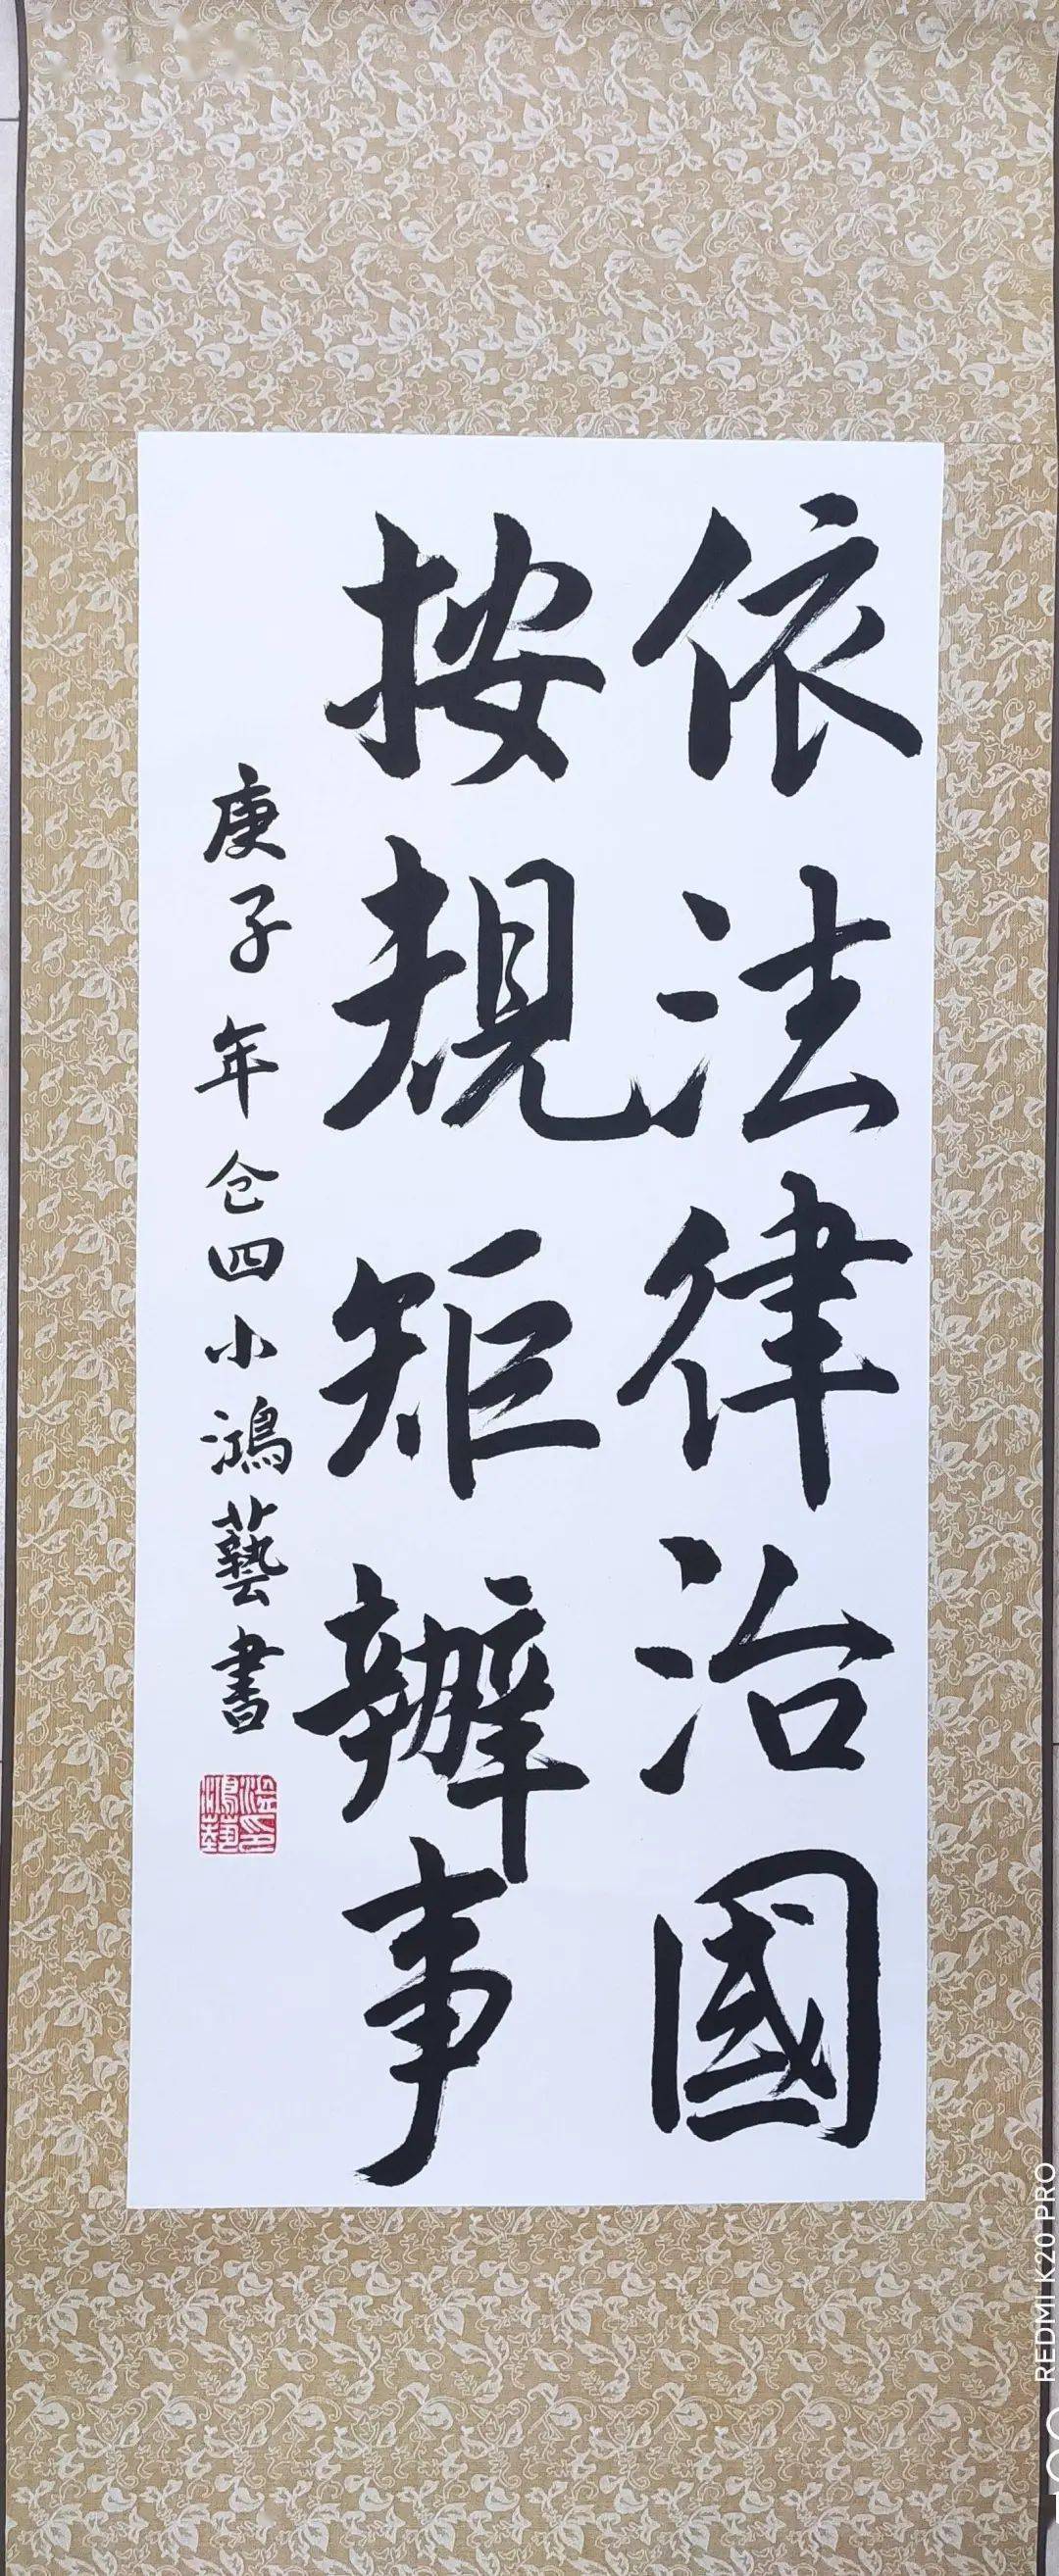 依法律治國
按規矩辦事
庚子年仓四小鴻藝書
REDMI K20 PRO